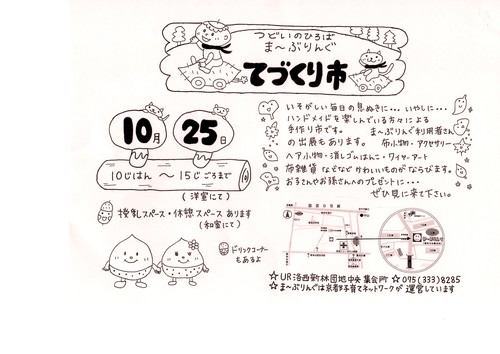 つどいのひろば
ま～ぶりんぐ
てづくり市
10月
25日
10じはん ～ 15じごろまで
(洋室にて)
授乳スペース・休憩スペース あります
(和室にて)
ドリンクコーナー
もあるよ
いそがしい毎日の息ぬきに… いやしに…
ハンドメイドを楽しんでいる方々による
手作り市です。 ま～ぶりんぐ利用者さん
の出展もあります。 布小物・アクセサリー
ヘア小物・消しゴムはんこ・ワイヤーアート
布雑貨 などなど かわいいものがならびます。
お子さんやお孫さんへのプレゼントに…
ぜひ見に来て下さい。
☆UR洛西新林団地中央集会所 ☆075(333)8285
☆ま～ぶりんぐは京都子育てネットワークが運営しています